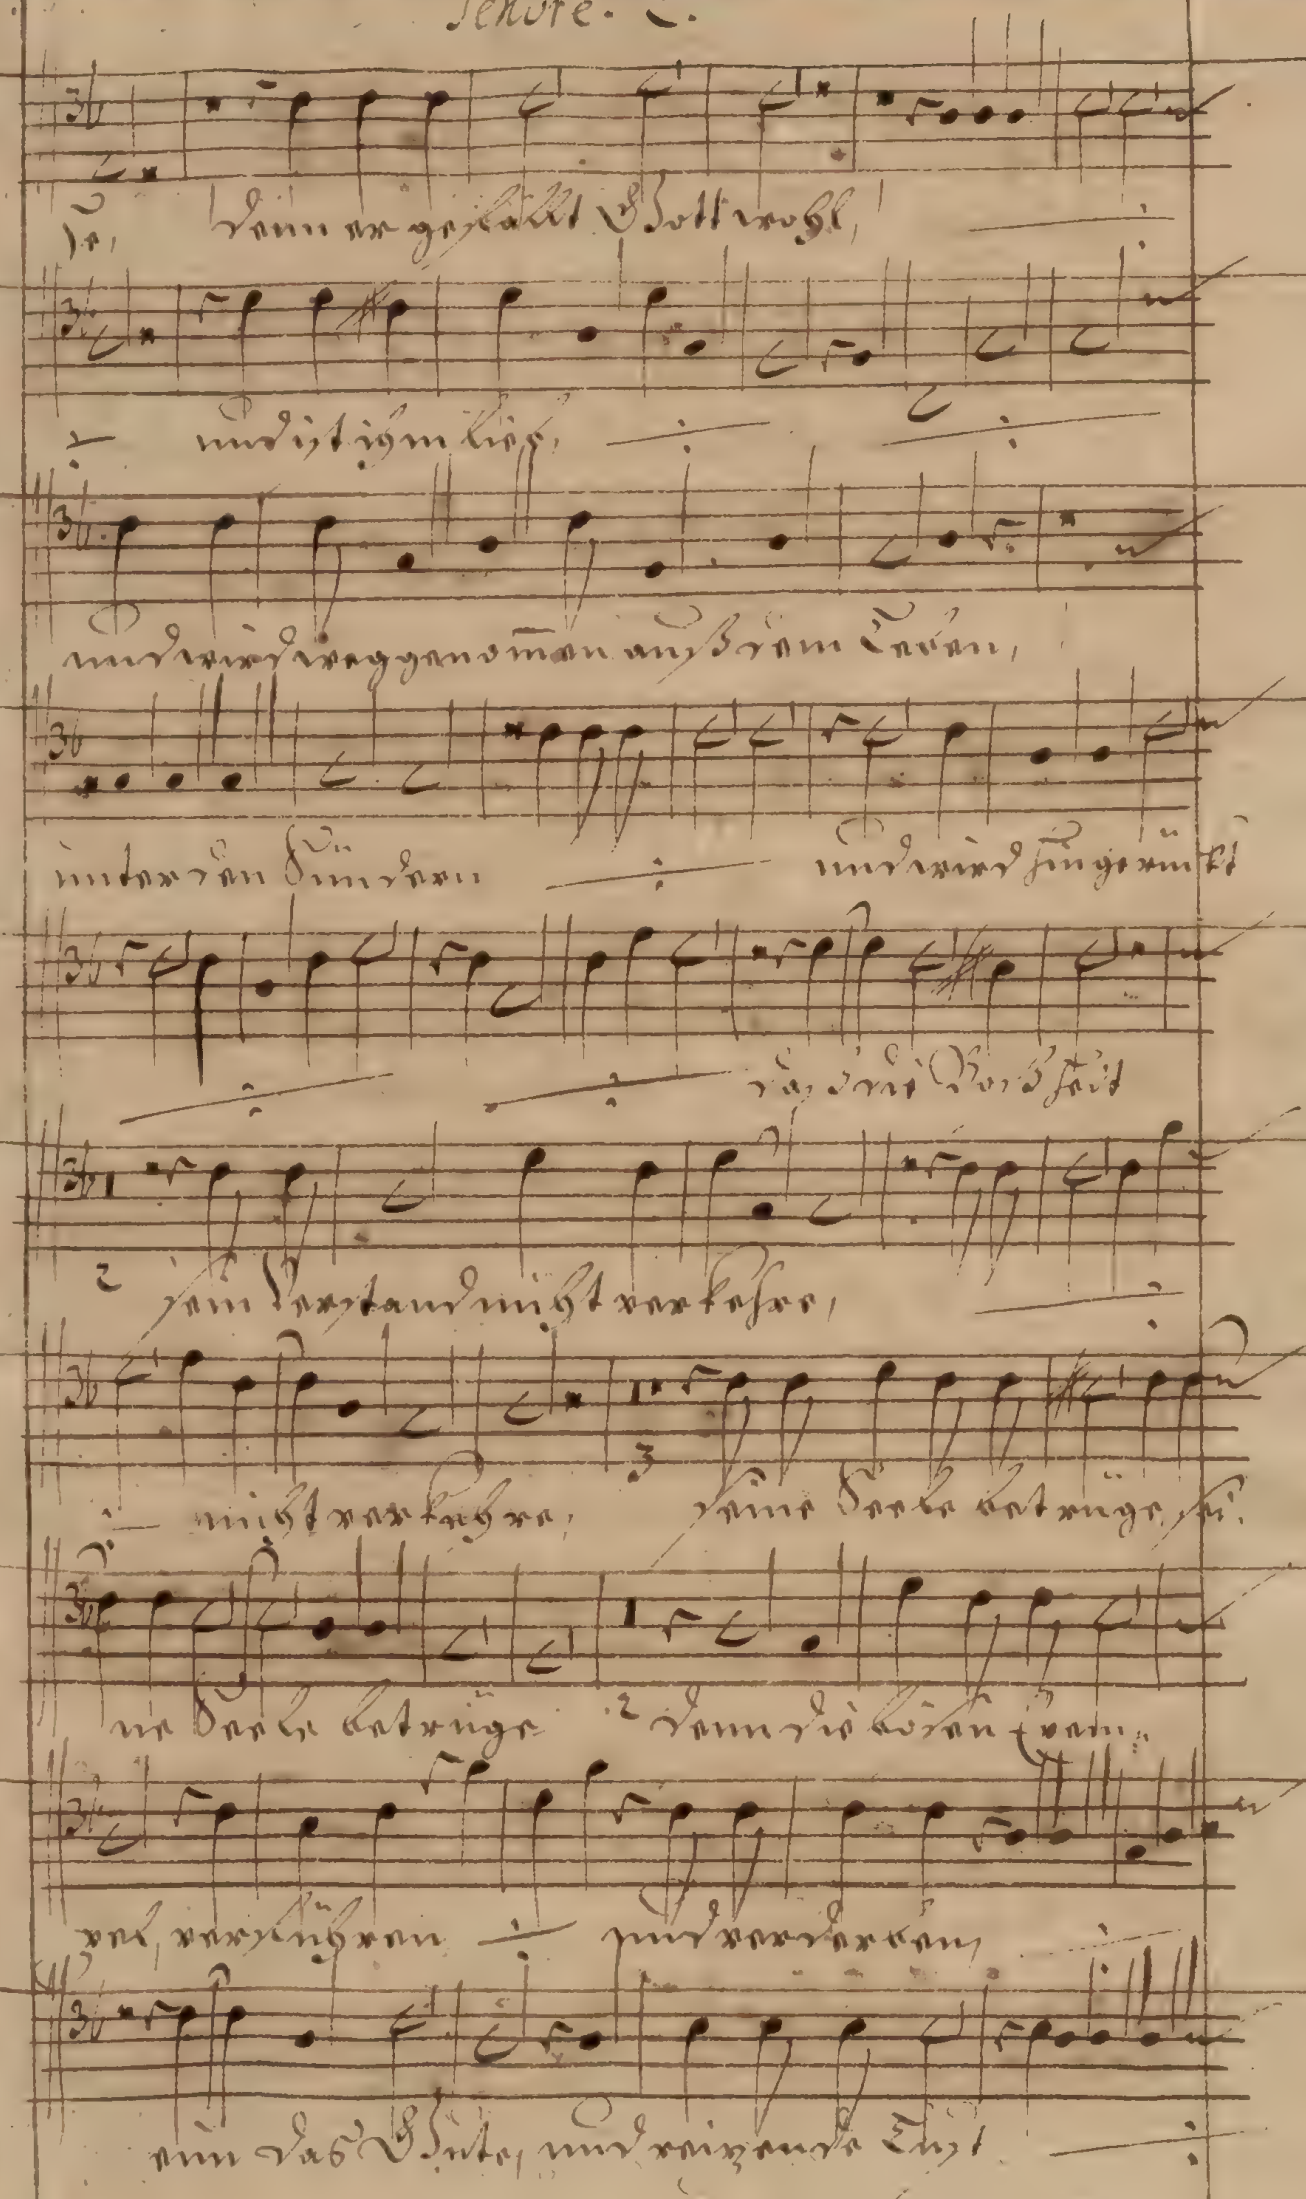 Tenore. 2.
de, denn er gefällt Gott wohl,
und ist ihm lieb,
und wird weggenom̅en auß dem Leben,
unter den Sündern und wird hingerückt
daß die Boßheit
2 sein Verstand nicht verkehre,
nicht verkehre, 3 seine Seele betrüge, sei-
ne Seele betrüge 2 denn die bösen Exem-
pel, verführen und verderben,
eim das Güte, und reizende Lust